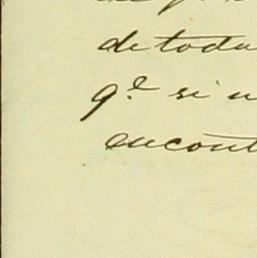 de todu
q.e si u
encont